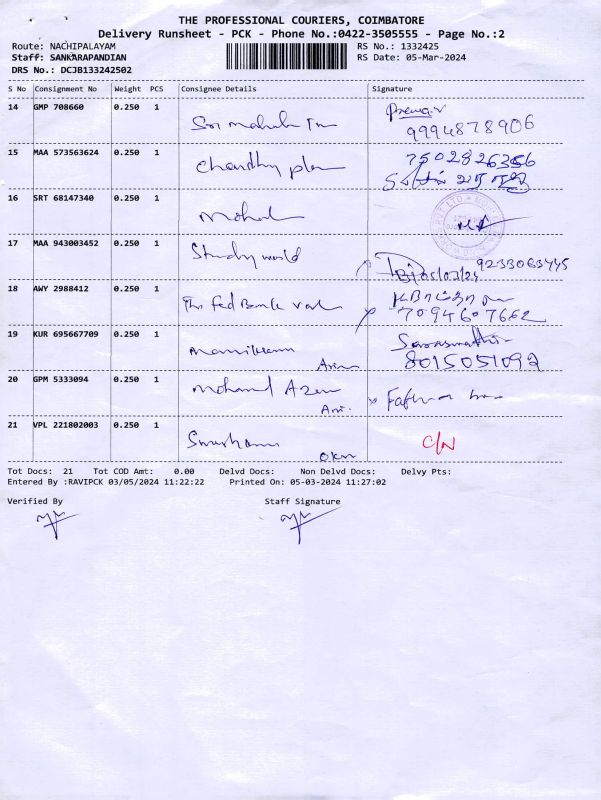 THE PROFESSIONAL COURIERS, COIMBATORE
Delivery Runsheet - PCK - Phone No.:0422-3505555 - Page No.:2
Route: NACHIPALAYAM RS No.: 1332425
Staff: SANKARAPANDIAN RS Date: 05-Mar-2024
DRS No.: DCJB133242502
S No Consignment No Weight PCS Consignee Details Signature
14 GMP 708660 0.250 1
Sri 9994878906
15 MAA 573563624 0.250 1 7502826356
16 SRT 68147340 0.250 1
Mohal
17 MAA 943003452 0.250 1
Study world 05/03/24 9233063445
18 AWY 2988412 0.250 1
The Fed Bank 7094607662
19 KUR 695667709 0.250 1 Saraswathi
8015051092
20 GPM 5333094 0.250 1
Mohamd
21 VPL 221802003 0.250 1 C/N
Tot Docs: 21 Tot COD Amt: 0.00 Delvd Docs: Non Delvd Docs: Delvy Pts:
Entered By :RAVIPCK 03/05/2024 11:22:22 Printed On: 05-03-2024 11:27:02
Verified By Staff Signature